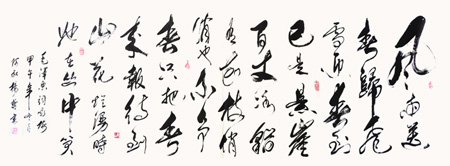 風雨送
春歸飛
雪迎春到
已是悬崖
百丈冰猶
有花枝俏
俏也不争
春只把春
来報待到
山花爛漫時
她在丛中笑
毛澤東詞咏梅
甲午年